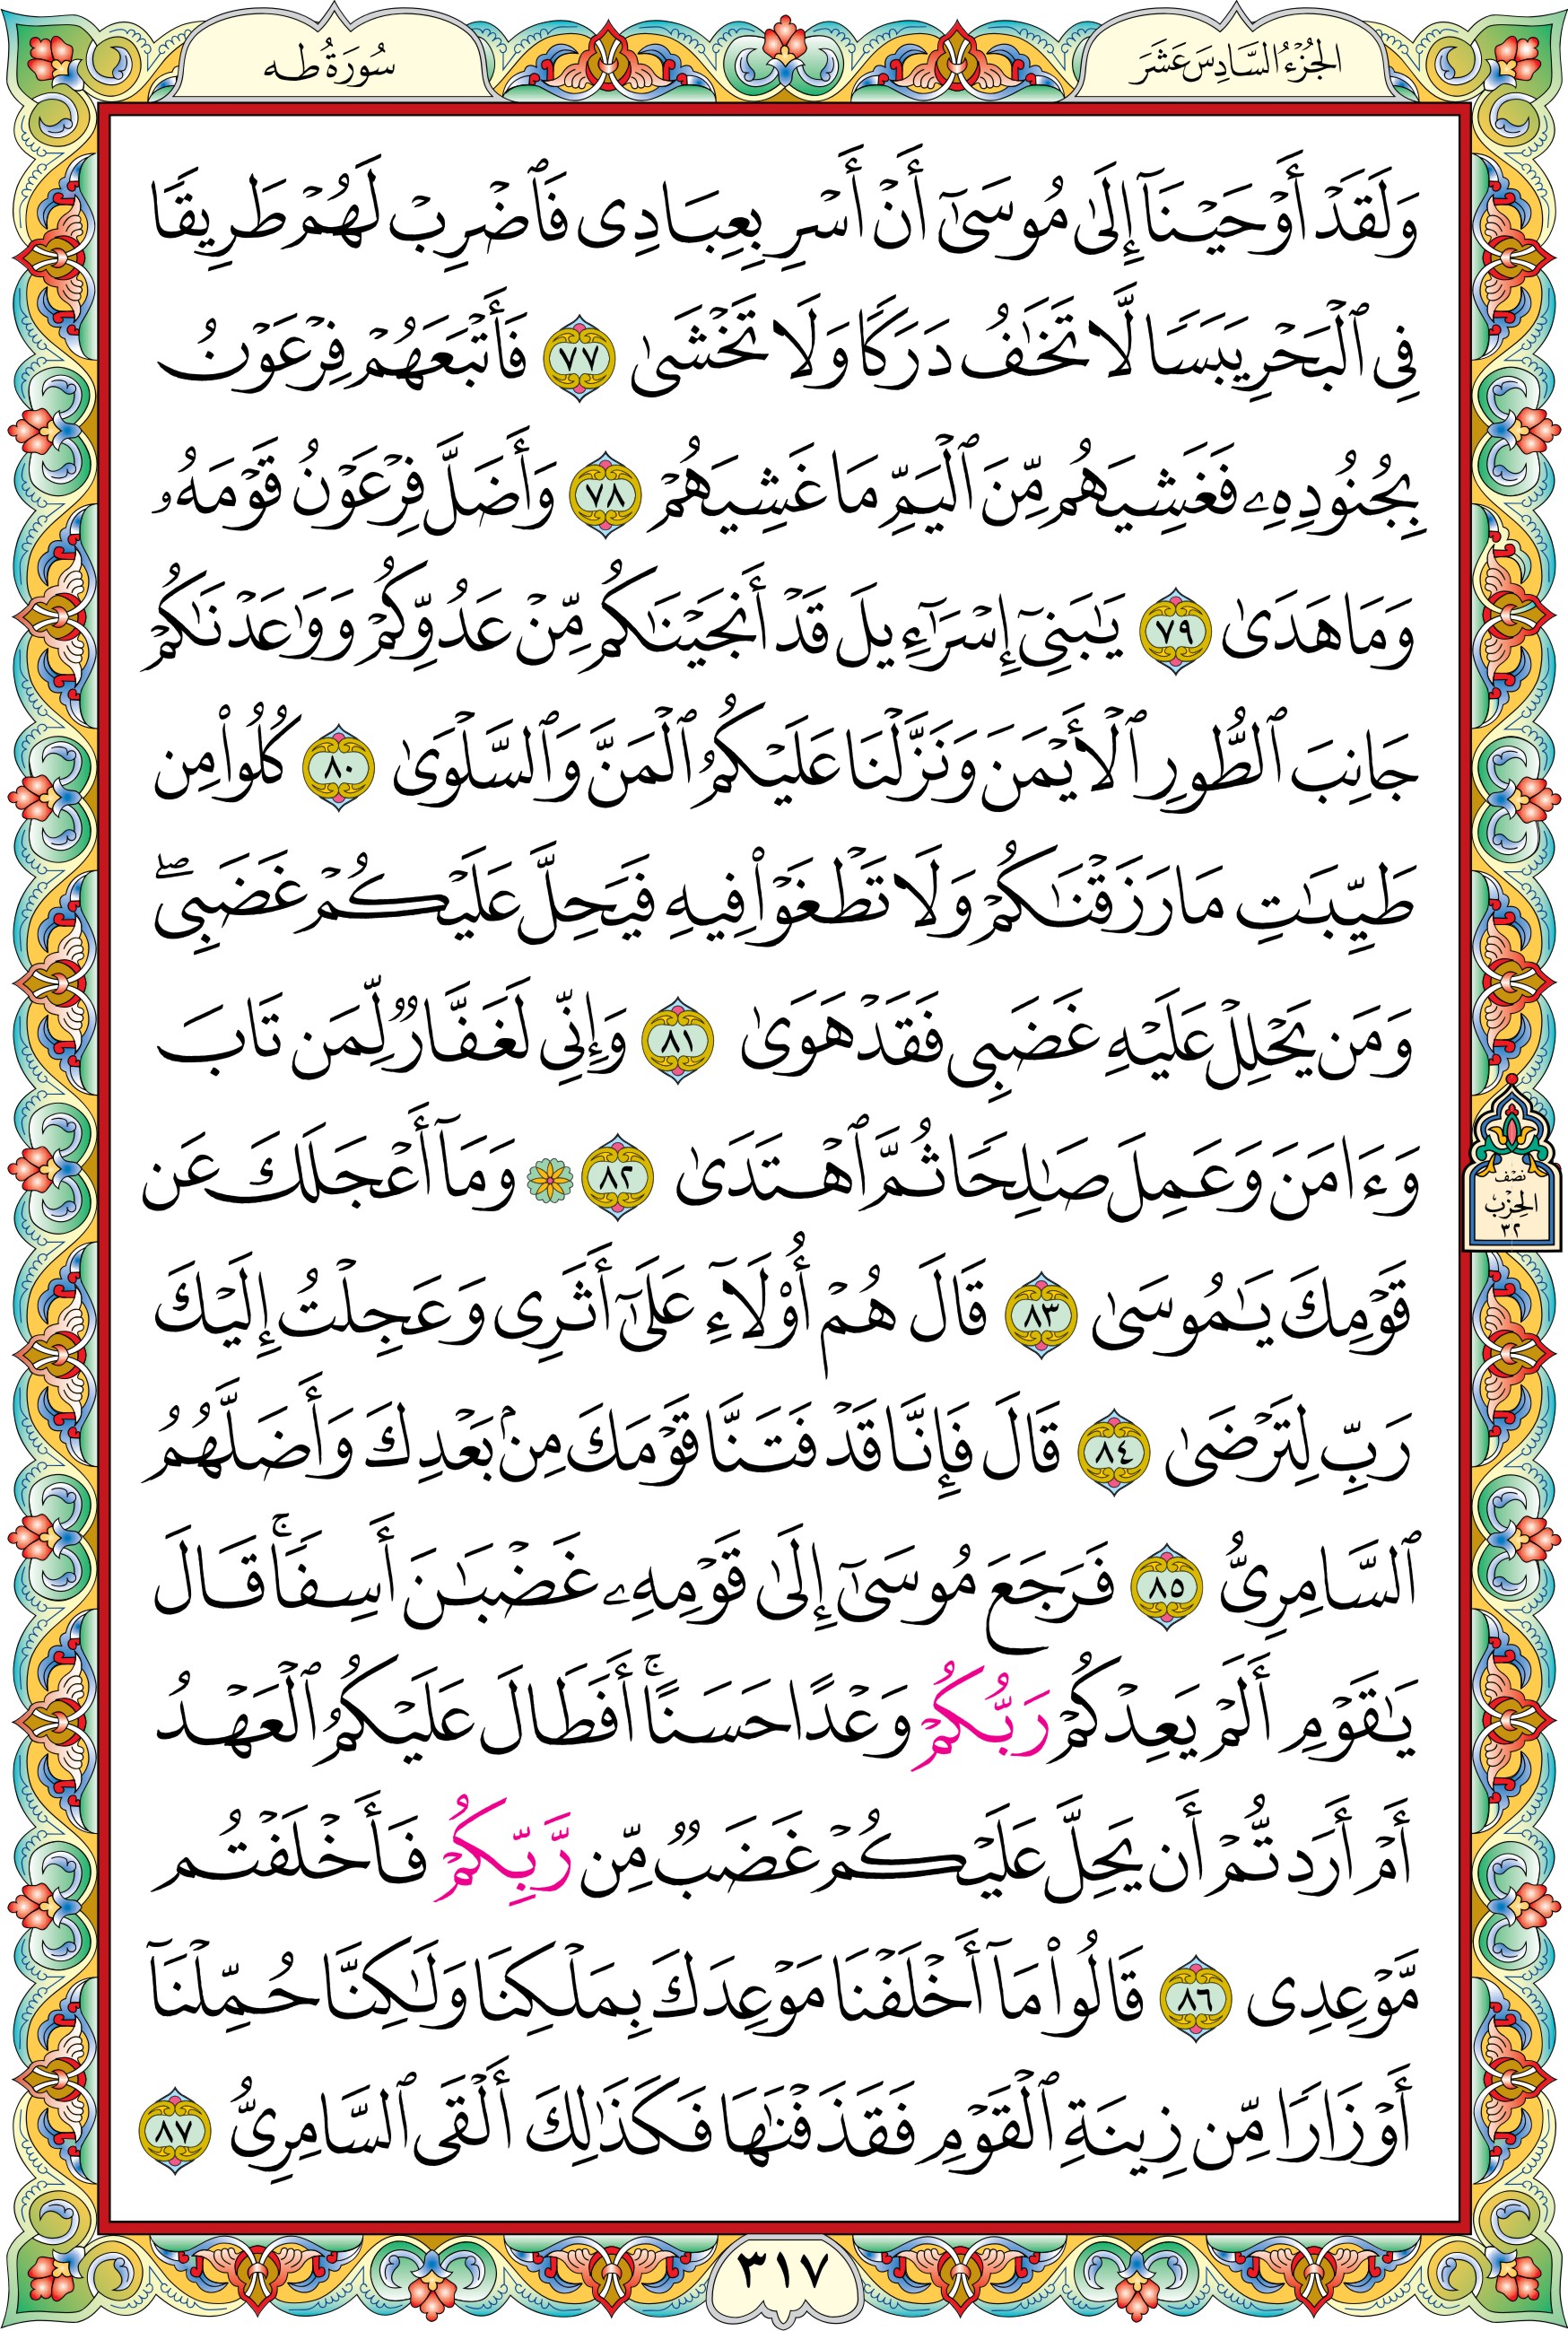 الجُزْءُ السَّادِسَ عَشَرَ
سُورَةُ طه
وَلَقَدْ أَوْحَيْنَآ إِلَىٰ مُوسَىٰٓ أَنْ أَسْرِ بِعِبَادِى فَٱضْرِبْ لَهُمْ طَرِيقًا
فِى ٱلْبَحْرِ يَبَسًا لَّا تَخَٰفُ دَرَكًا وَلَا تَخْشَىٰ ٧٧ فَأَتْبَعَهُمْ فِرْعَوْنُ
بِجُنُودِهِۦ فَغَشِيَهُم مِّنَ ٱلْيَمِّ مَا غَشِيَهُمْ ٧٨ وَأَضَلَّ فِرْعَوْنُ قَوْمَهُۥ
وَمَا هَدَىٰ ٧٩ يَٰبَنِىٓ إِسْرَٰٓءِيلَ قَدْ أَنجَيْنَٰكُم مِّنْ عَدُوِّكُمْ وَوَٰعَدْنَٰكُمْ
جَانِبَ ٱلطُّورِ ٱلْأَيْمَنَ وَنَزَّلْنَا عَلَيْكُمُ ٱلْمَنَّ وَٱلسَّلْوَىٰ ٨٠ كُلُوا۟ مِن
طَيِّبَٰتِ مَا رَزَقْنَٰكُمْ وَلَا تَطْغَوْا۟ فِيهِ فَيَحِلَّ عَلَيْكُمْ غَضَبِى ۖ
وَمَن يَحْلِلْ عَلَيْهِ غَضَبِى فَقَدْ هَوَىٰ ٨١ وَإِنِّى لَغَفَّارٌ لِّمَن تَابَ
وَءَامَنَ وَعَمِلَ صَٰلِحًا ثُمَّ ٱهْتَدَىٰ ٨٢ ۞ وَمَآ أَعْجَلَكَ عَن
نصف
الحزب
٣٢
قَوْمِكَ يَٰمُوسَىٰ ٨٣ قَالَ هُمْ أُو۟لَآءِ عَلَىٰٓ أَثَرِى وَعَجِلْتُ إِلَيْكَ
رَبِّ لِتَرْضَىٰ ٨٤ قَالَ فَإِنَّا قَدْ فَتَنَّا قَوْمَكَ مِنۢ بَعْدِكَ وَأَضَلَّهُمُ
ٱلسَّامِرِىُّ ٨٥ فَرَجَعَ مُوسَىٰٓ إِلَىٰ قَوْمِهِۦ غَضْبَٰنَ أَسِفًا ۚ قَالَ
يَٰقَوْمِ أَلَمْ يَعِدْكُمْ رَبُّكُمْ وَعْدًا حَسَنًا ۚ أَفَطَالَ عَلَيْكُمُ ٱلْعَهْدُ
أَمْ أَرَدتُّمْ أَن يَحِلَّ عَلَيْكُمْ غَضَبٌ مِّن رَّبِّكُمْ فَأَخْلَفْتُم
مَّوْعِدِى ٨٦ قَالُوا۟ مَآ أَخْلَفْنَا مَوْعِدَكَ بِمَلْكِنَا وَلَٰكِنَّا حُمِّلْنَآ
أَوْزَارًا مِّن زِينَةِ ٱلْقَوْمِ فَقَذَفْنَٰهَا فَكَذَٰلِكَ أَلْقَى ٱلسَّامِرِىُّ ٨٧
٣١٧